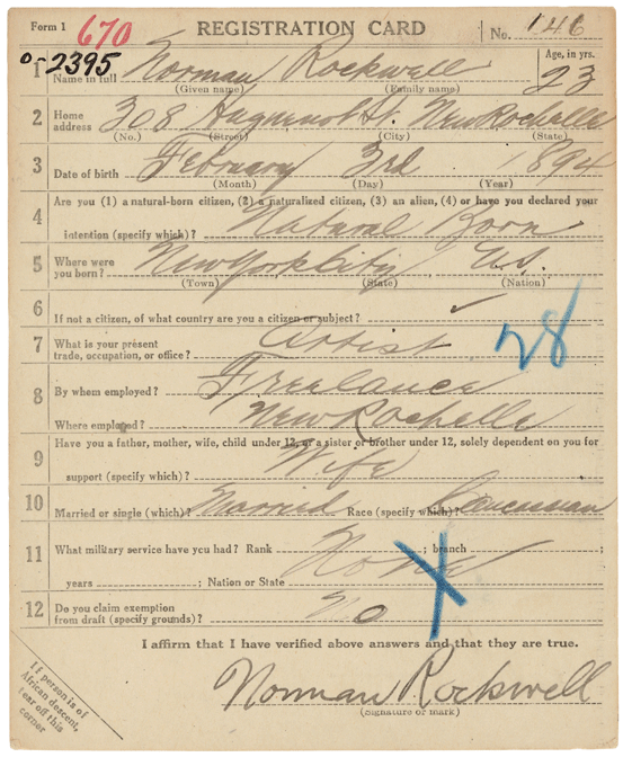 Form 1 670 REGISTRATION CARD No. 146
0-2395
1 Name in full Norman Rockwell Age, in yrs. 23
(Given name) (Family name)
2 Home address 308 Huguenot St. New Rochelle
(No.) (Street) (City) (State)
3 Date of birth February 3rd 1894
(Month) (Day) (Year)
4 Are you (1) a natural-born citizen, (2) a naturalized citizen, (3) an alien, (4) or have you declared your
intention (specify which)? Natural Born
5 Where were you born? New York City U.S.
(Town) (State) (Nation)
6 If not a citizen, of what country are you a citizen or subject? ✓
7 What is your present trade, occupation, or office? Artist 28
8 By whom employed? Freelance
Where employed? New Rochelle
9 Have you a father, mother, wife, child under 12, or a sister or brother under 12, solely dependent on you for
support (specify which)? Wife
10 Married or single (which)? Married Race (specify which)? Caucasian
11 What military service have you had? Rank None ; branch ;
years ; Nation or State X
12 Do you claim exemption from draft (specify grounds)? No
I affirm that I have verified above answers and that they are true.
Norman Rockwell
(Signature or mark)
If person is of
African descent,
tear off this
corner